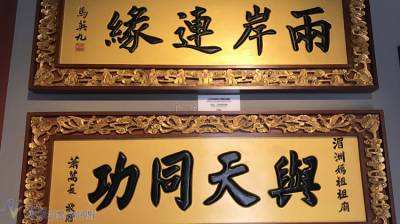 兩岸連緣
馬英九
湄洲媽祖祖廟
與天同功
蕭萬長 敬贈